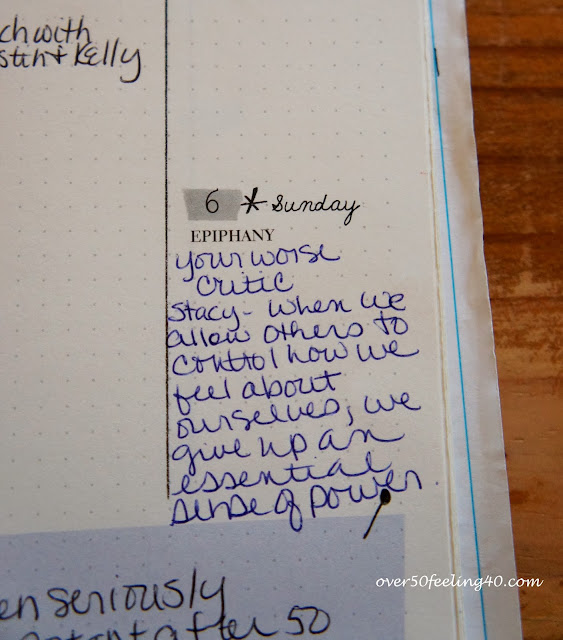 ch with
stin + Kelly
6 * Sunday
EPIPHANY
your worse
critic
Stacy - when we
allow others to
control how we
feel about
ourselves, we
give up an
essential
sense of power
over50feeling40.com
en seriously
after 50